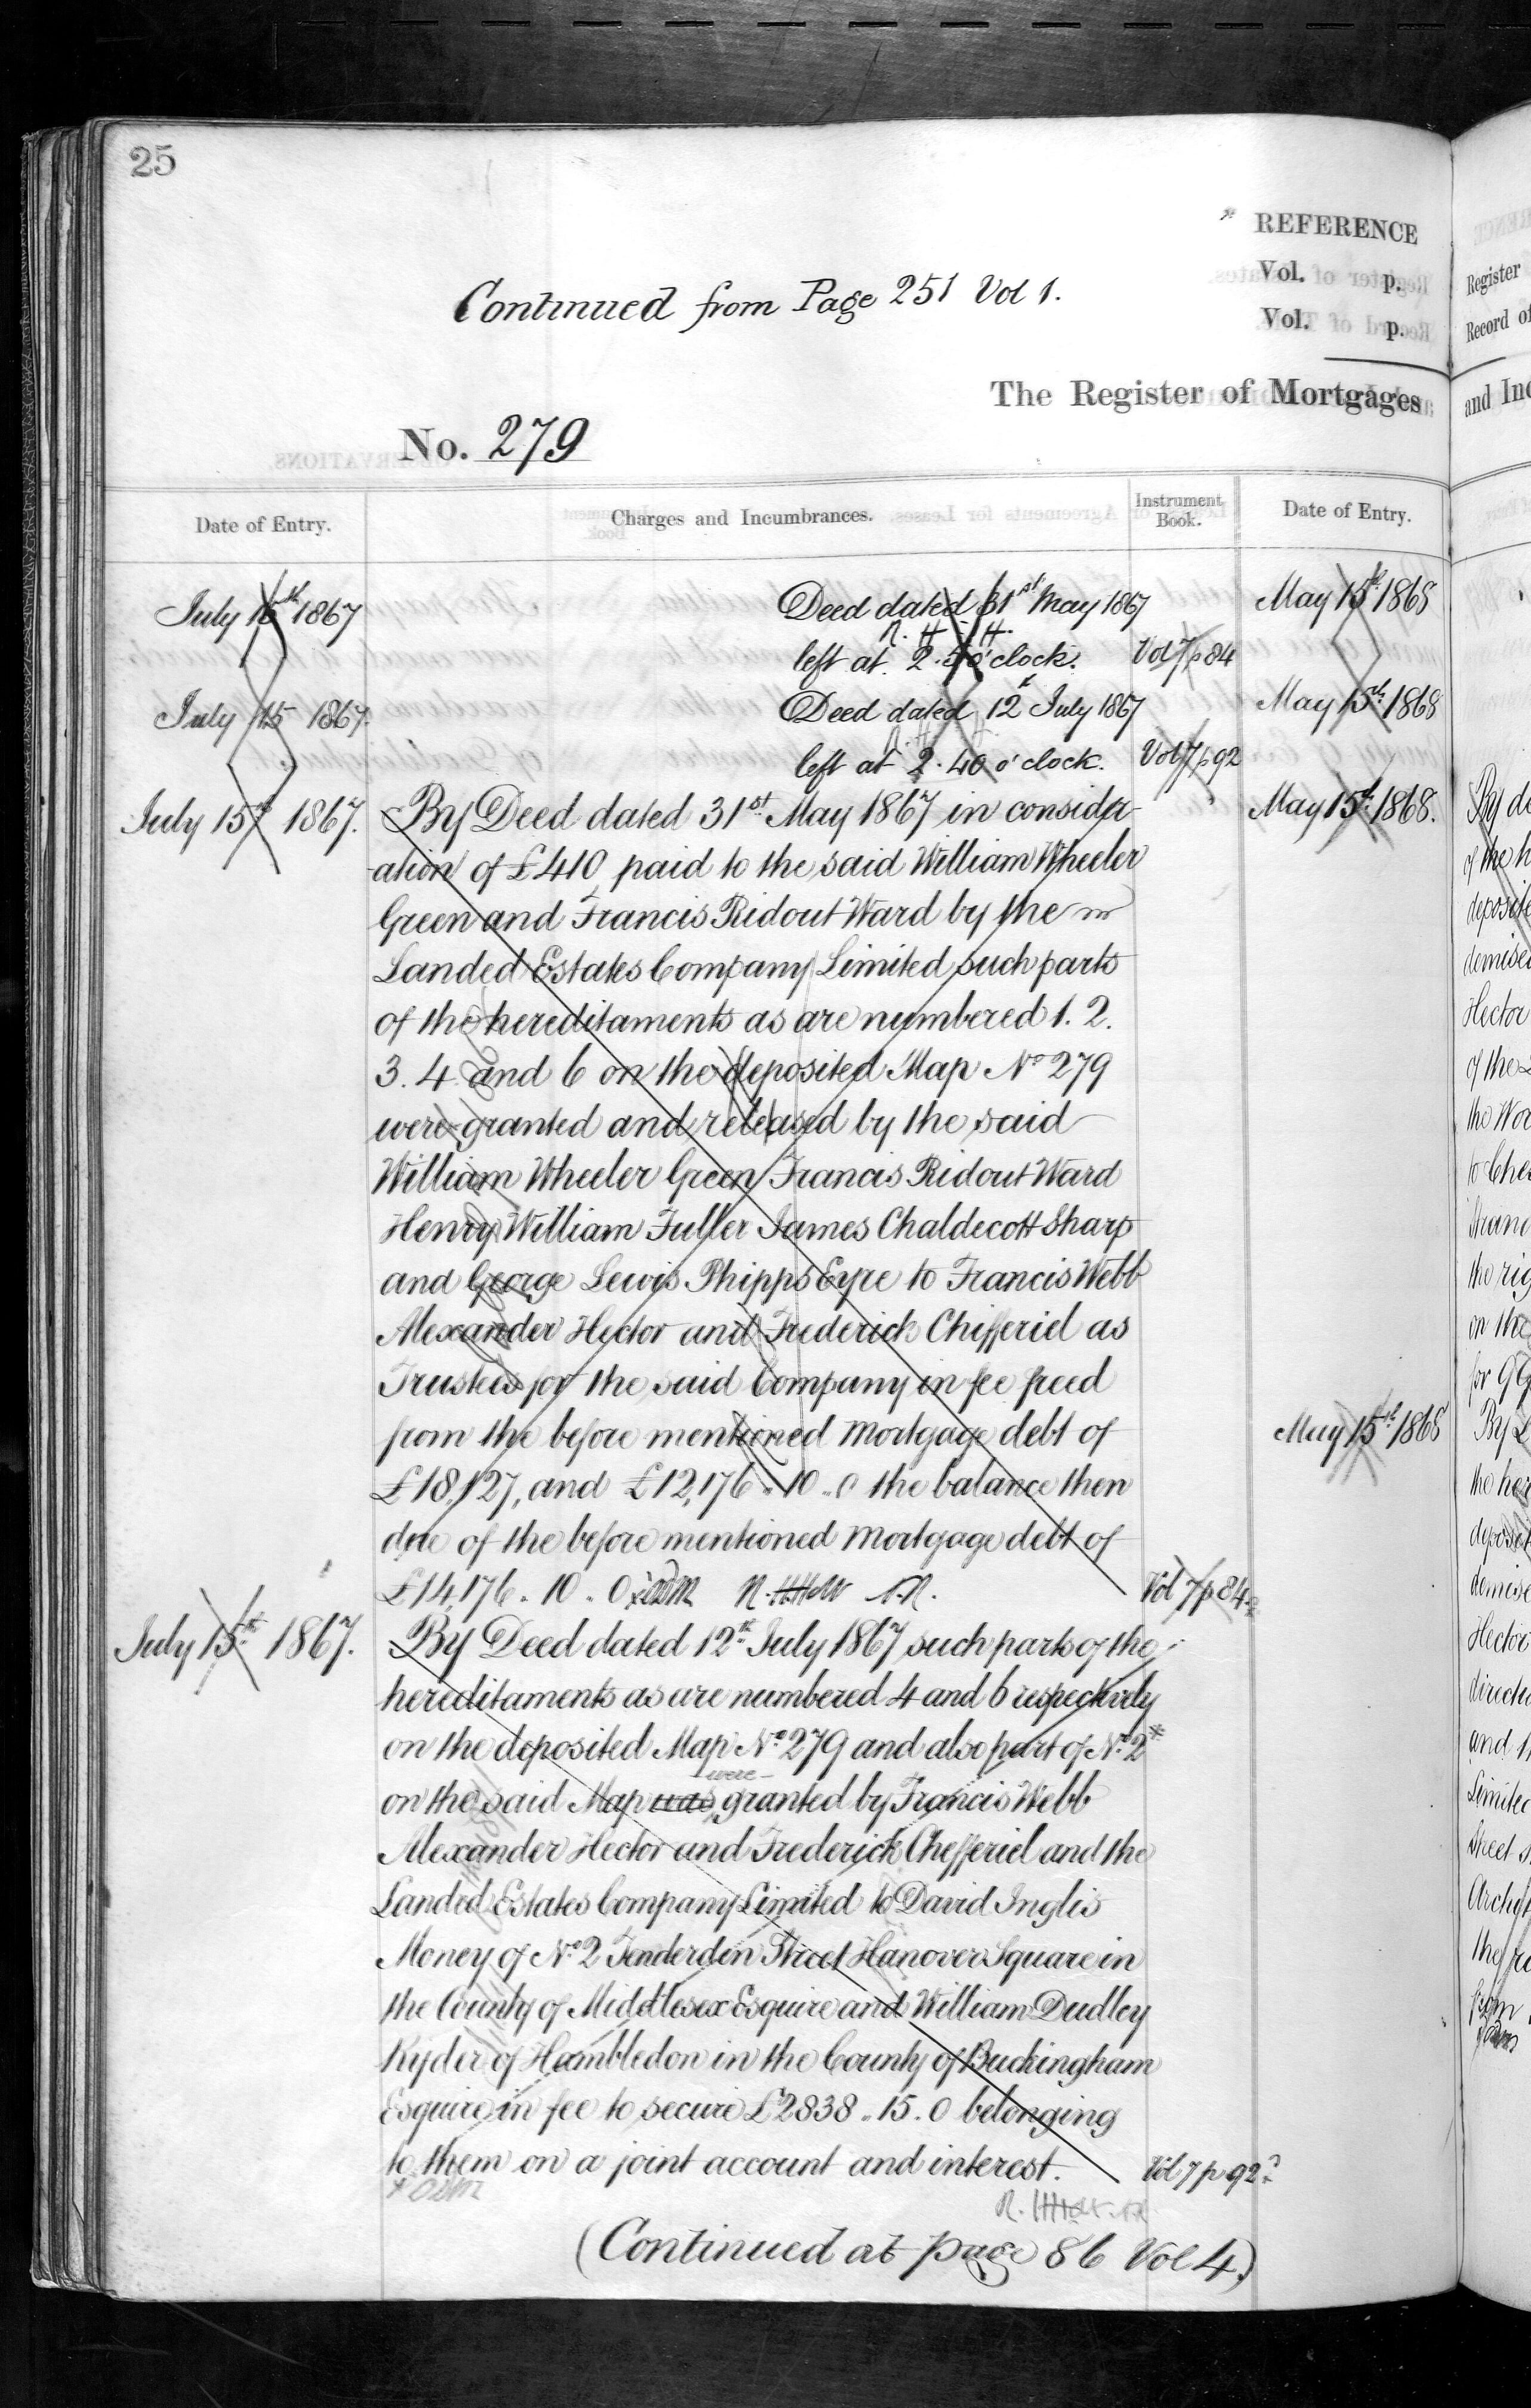 25
REFERENCE
Vol. p.
Vol. p.
Continued from Page 251 Vol 1.
The Register of Mortgages
No. 279
Date of Entry.
Charges and Incumbrances.
Instrument Book.
Date of Entry.
July 15th 1867
Deed dated 31st May 1867
May 15th 1868
left at 2. o'clock.
Vol 7 p 84
July 15 1867.
Deed dated 12th July 1867
May 15th 1868
left at 2.40 o'clock.
Vol 7 p 92
July 15th 1867.
By Deed dated 31st May 1867 in consider
May 15th 1868.
ation of £410 paid to the said William Wheeler
Green and Francis Ridout Ward by the
Landed Estates Company Limited such parts
of the hereditaments as are numbered 1. 2.
3. 4 and 6 on the deposited Map No 279
were granted and released by the said
William Wheeler Green Francis Ridout Ward
Henry William Fuller James Chaldecott Sharp
and George Lewis Phipps Eyre to Francis Webb
Alexander Hector and Frederick Chifferiel as
Trustees for the said Company in fee freed
from the before mentioned Mortgage debt of
May 15th 1868
£18,127, and £12,176 .. 10 .. 0 the balance then
due of the before mentioned Mortgage debt of
£14,176 .. 10 .. 0
Vol 7 p 84
July 15th 1867.
By Deed dated 12th July 1867 such parts of the
hereditaments as are numbered 4 and 6 respectively
on the deposited Map No 279 and also part of No 2*
were
on the said Map was granted by Francis Webb
Alexander Hector and Frederick Chefferiel and the
Landed Estates Company Limited to David Inglis
Money of No 2 Tenderden Street Hanover Square in
the County of Middlesex Esquire and William Dudley
Ryder of Hambledon in the County of Buckingham
Esquire in fee to secure £2838 .. 15 . 0 belonging
to them on a joint account and interest.
Vol 7 p 92
(Continued at page 86 Vol 4.)
Register
Record of
and Inc
of the h
demised
Hector
to Ches
on the
for 99
demise
Hector
and
Limited
Street
from